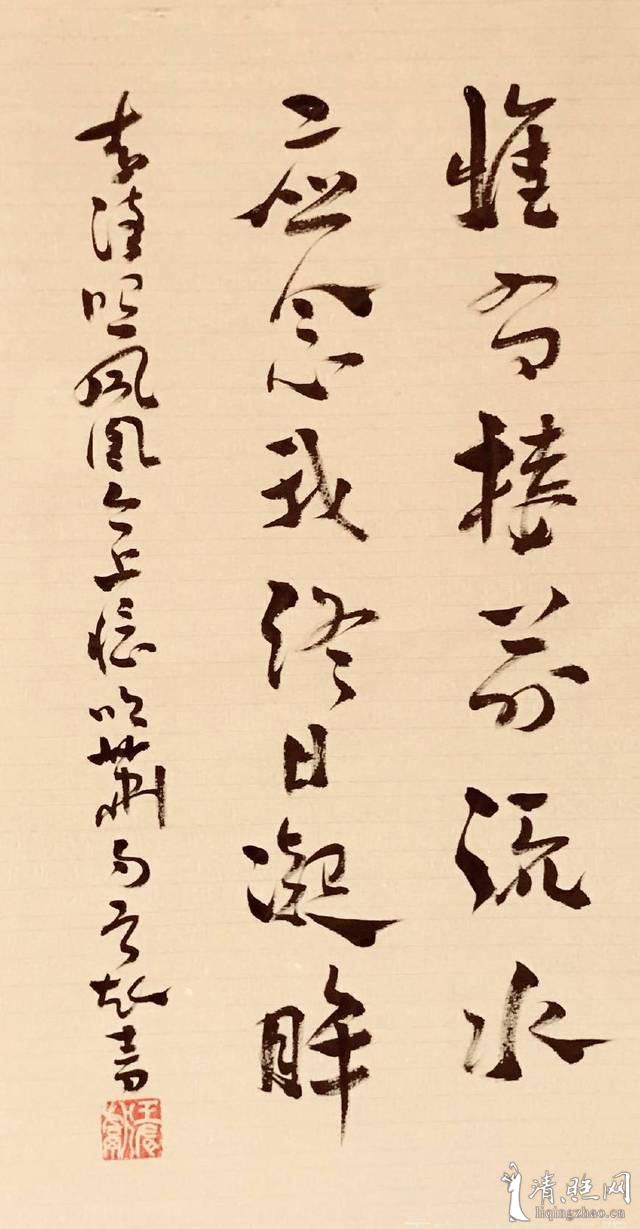 惟有楼前流水
应念我终日凝眸
李清照凤凰台上憶吹箫句
清照网
liqingzhao.cn